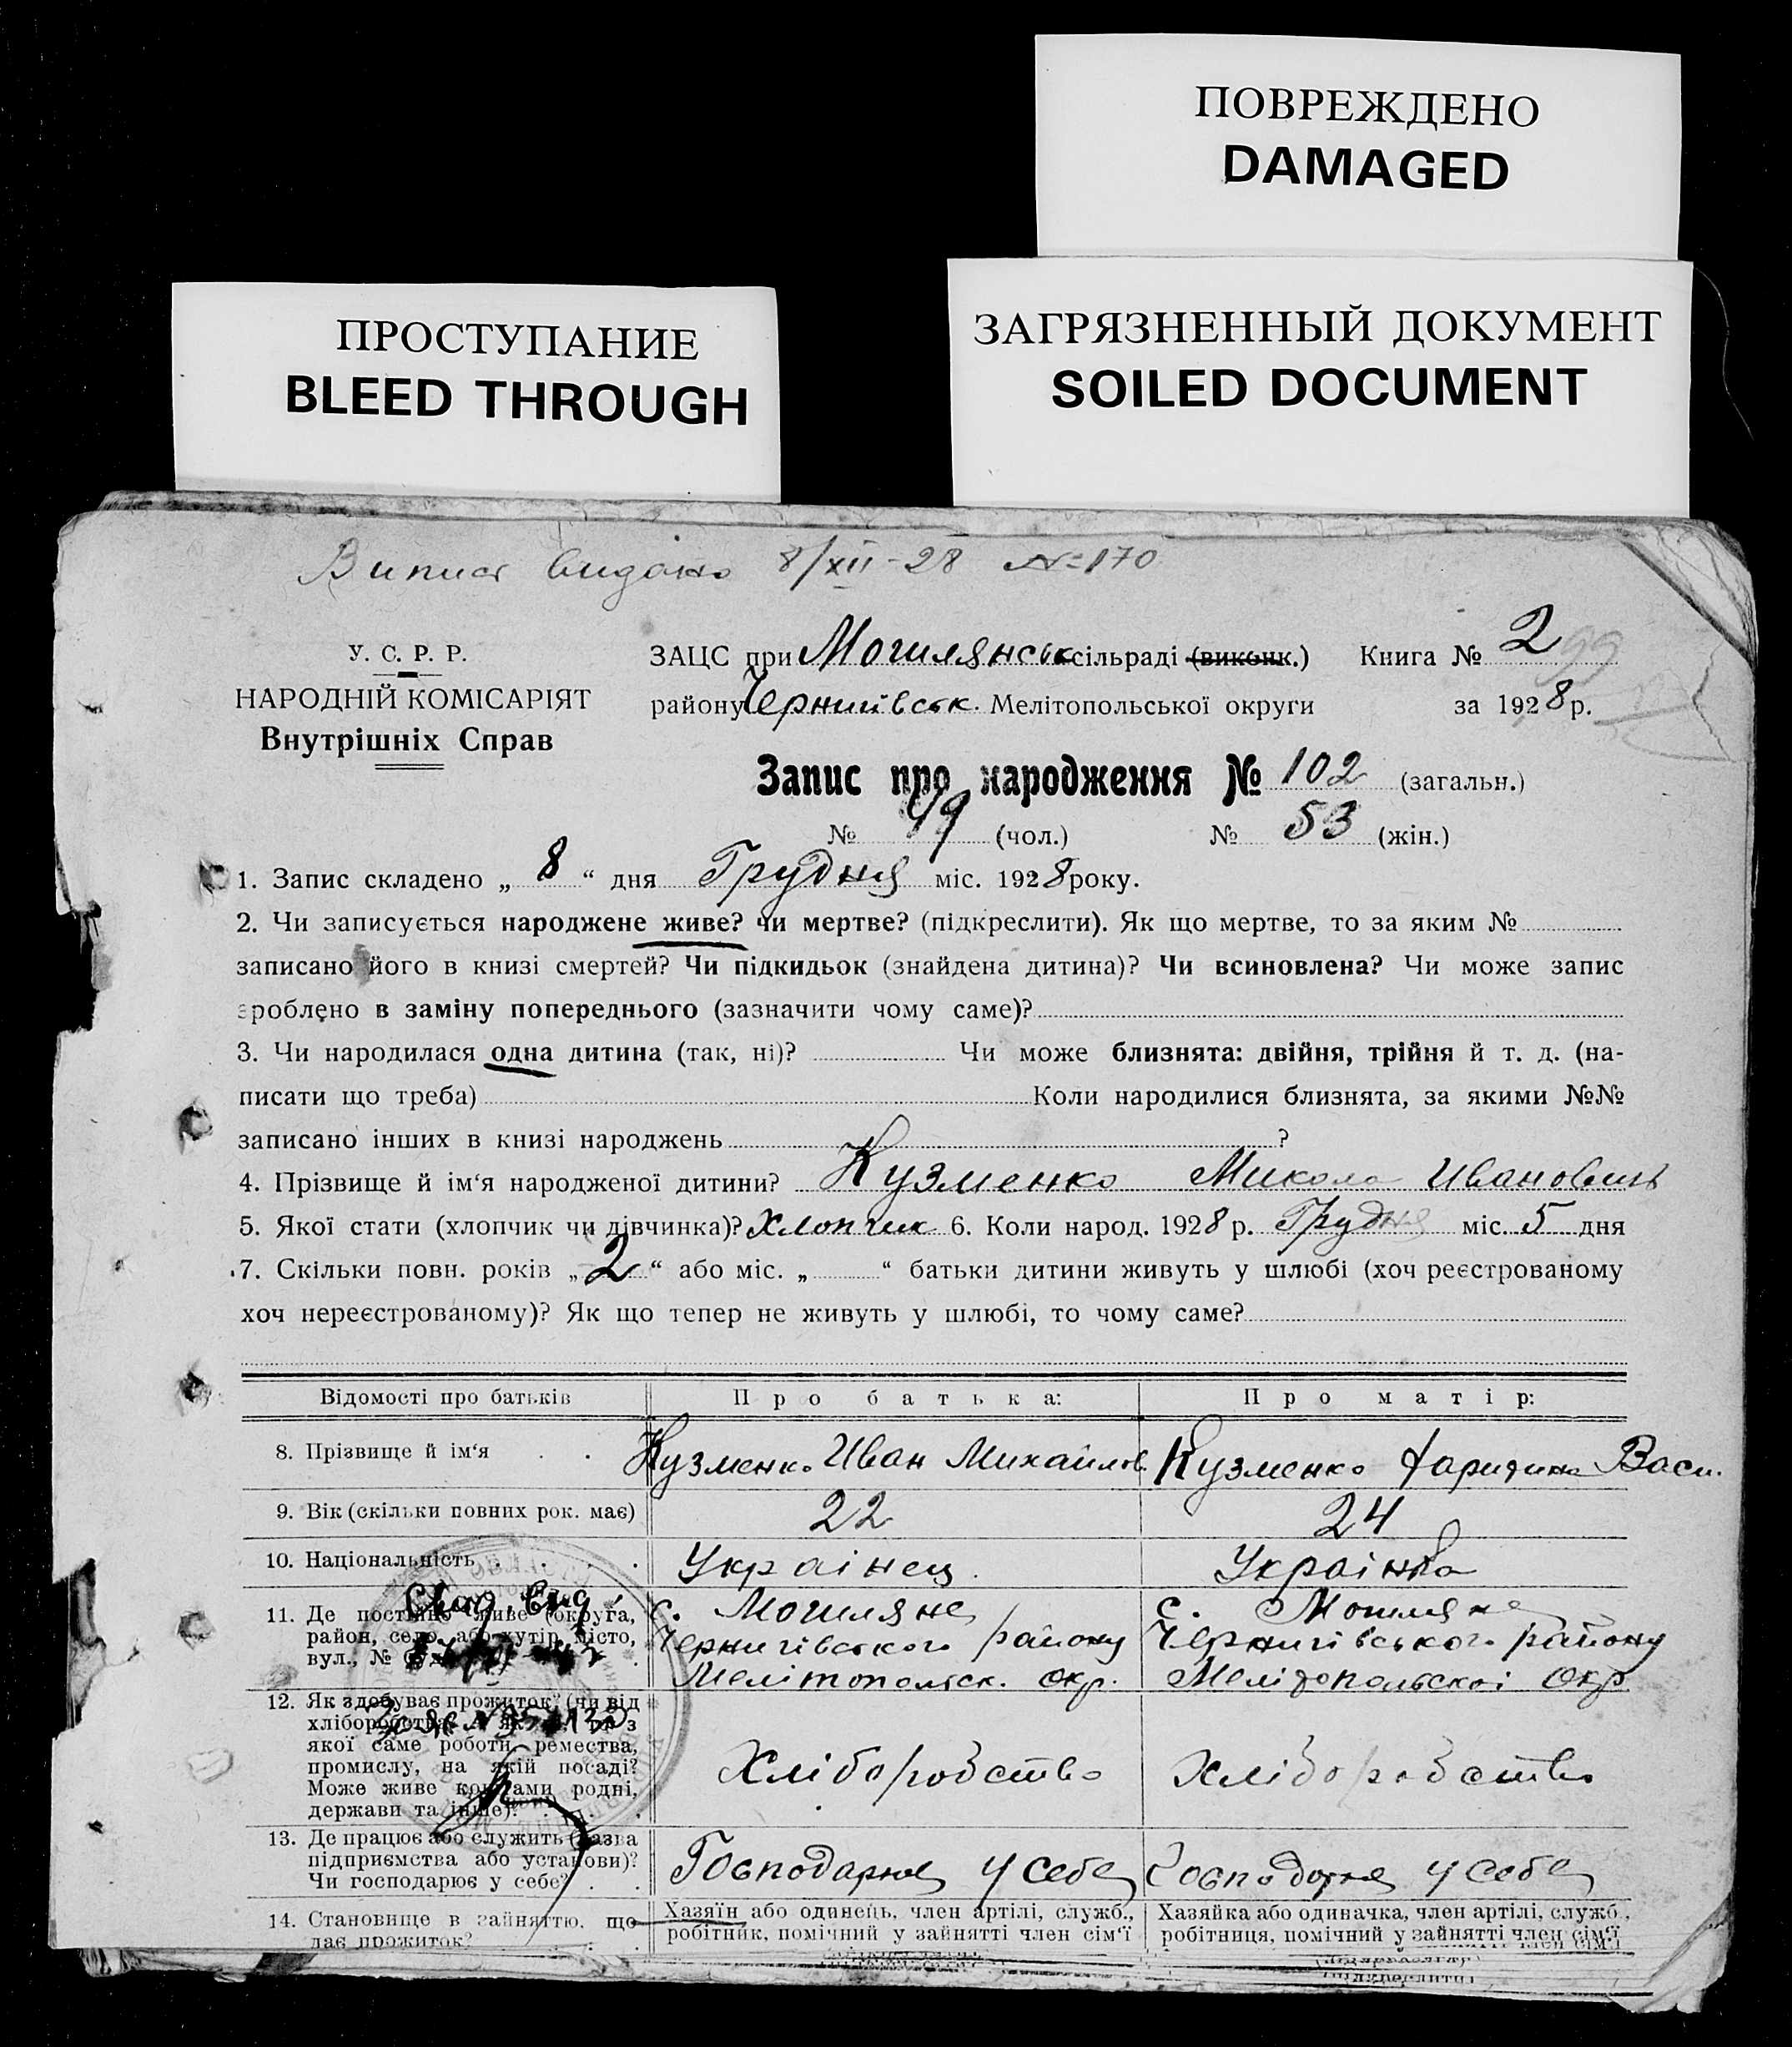 ПОВРЕЖДЕНО
DAMAGED
ПРОСТУПАНИЕ
BLEED THROUGH
ЗАГРЯЗНЕННЫЙ ДОКУМЕНТ
SOILED DOCUMENT
Випись видано 8/XII-28 №170
У. С. Р. Р.
НАРОДНІЙ КОМІСАРІЯТ
Внутрішніх Справ
ЗАЦС при Могилянськ сільраді (виконк.) Книга № 2 99
району Чернигівськ. Мелітопольської округи за 1928 р.
Запис про народження № 102 (загальн.)
№ 49 (чол.) № 53 (жін.)
1. Запис складено „ 8 “ дня Грудня міс. 1928 року.
2. Чи записується народжене живе? чи мертве? (підкреслити). Як що мертве, то за яким №
записано його в книзі смертей? Чи підкидьок (знайдена дитина)? Чи всиновлена? Чи може запис
зроблено в заміну попереднього (зазначити чому саме)?
3. Чи народилася одна дитина (так, ні)? Чи може близнята: двійня, трійня й т. д. (на-
писати що треба) Коли народилися близнята, за якими №№
записано інших в книзі народжень ?
4. Прізвище й ім‘я народженої дитини? Кузменко Микола Ивановичь
5. Якої стати (хлопчик чи дівчинка)? Хлопчик 6. Коли народ. 1928 р. Грудня міс. 5 дня
7. Скільки повн. років „ 2 “ або міс. „ “ батьки дитини живуть у шлюбі (хоч реєстрованому
хоч нереєстрованому)? Як що тепер не живуть у шлюбі, то чому саме?
Відомості про батьків
Про батька:
Про матір:
8. Прізвище й ім‘я
Кузменко Иван Михайлов.
Кузменко Васи.
9. Вік (скільки повних рок. має)
22
24
10. Національність
Украінец
Украінка
11. Де постійно живе (округа,
район, село, або хутір, місто,
вул., №
с. Могиляне
Чернигівського району
Мелітопольск. Окр.
с. Могиляне
Чернигівського району
Мелітопольскоі Окр
12. Як здобуває прожиток? (чи від
хліборобства,
якої саме роботи, ремества,
промислу, на якій посаді?
Може живе коштами родні,
держави та інше)?
Хліборобство
Хліборобство
13. Де працює або служить (назва
підприємства або установи)?
Чи господарює у себе?
Господарює у себе
Господарює у себе
14. Становище в зайняттю, що
дає прожиток?
Хазяїн або одинець, член артілі, служб.,
робітник, помічний у зайнятті член сім‘ї
Хазяйка або одиначка, член артілі, служб.,
робітниця, помічний у зайнятті член сім‘ї